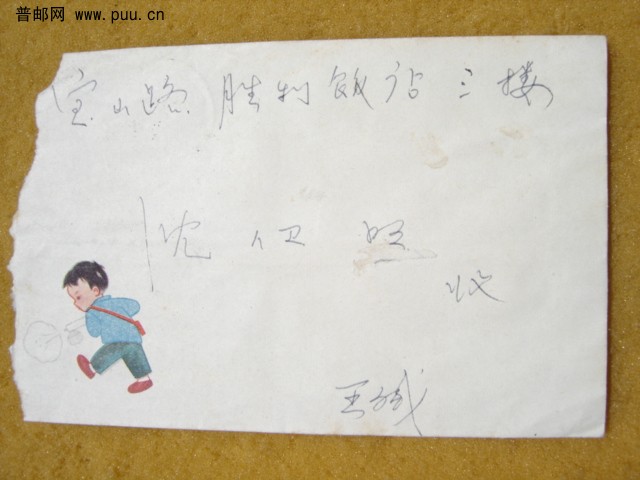 普邮网 www.puu.cn
宝山路 胜利饭店 三楼
沈
收
王斌